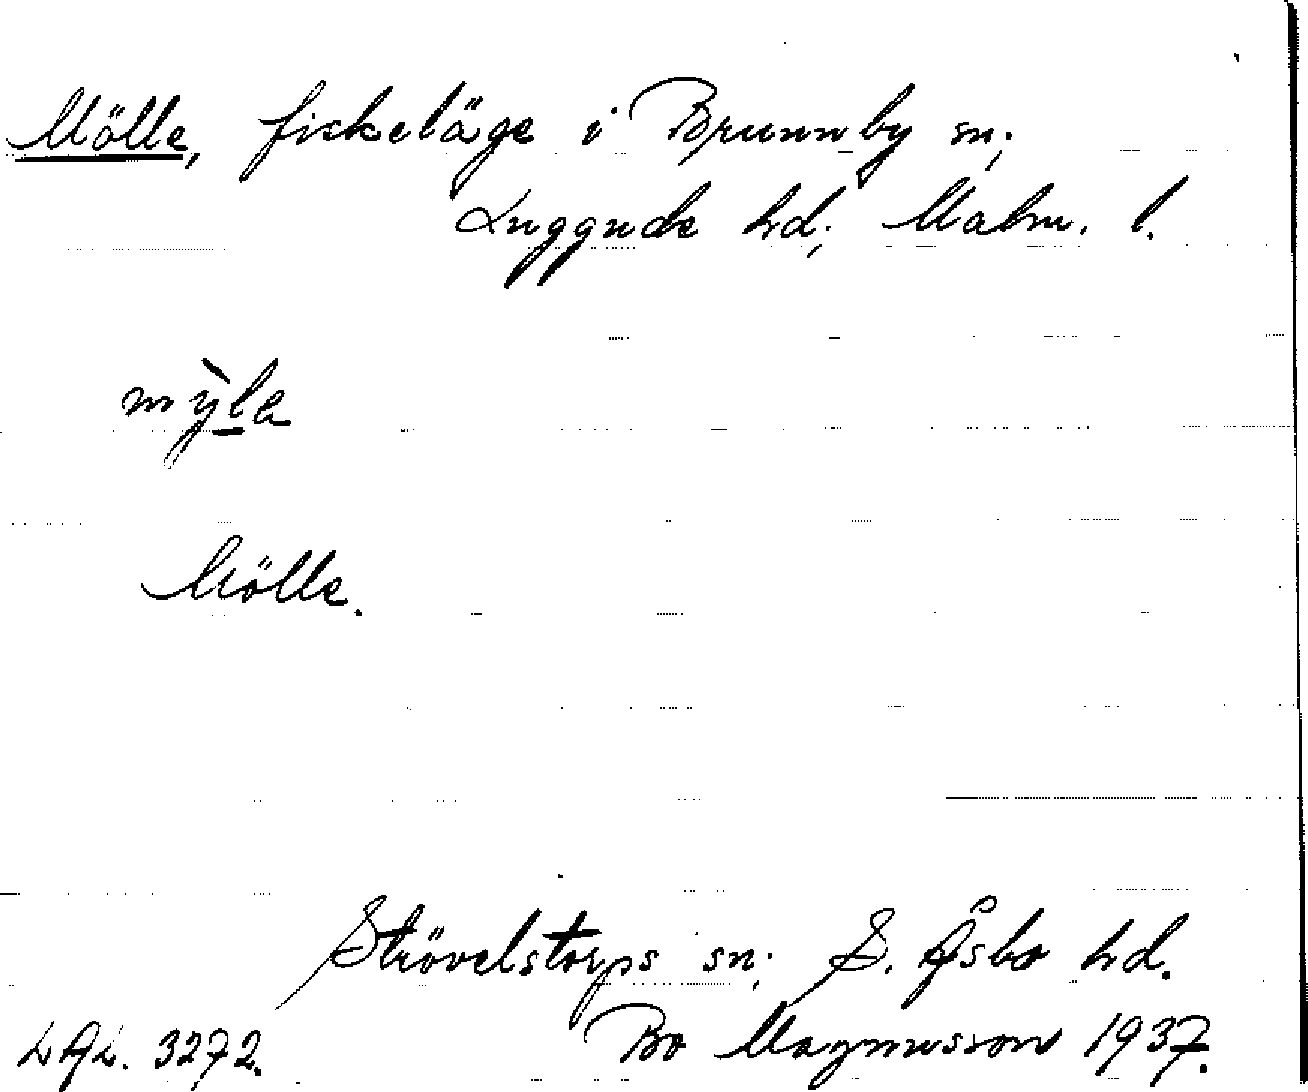 Mölle, fiskeläge i Brunnby sn;
Luggude hd; Malm. l.
mỳl̲e
Mölle.
Strövelstorps sn; S. Åsbo hd.
LAL. 3272. Bo Magnusson 1937.